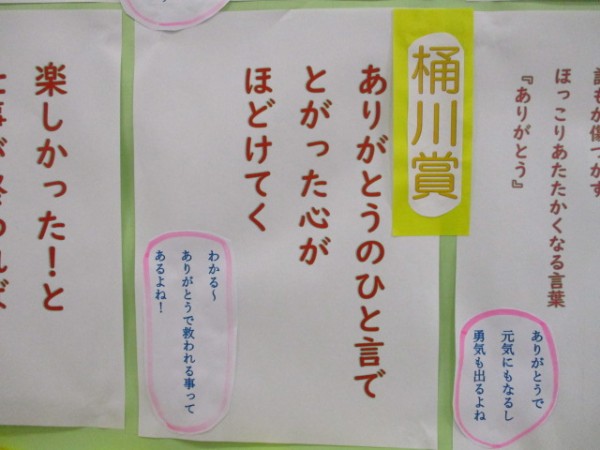 誰もが傷つかず
ほっこりあたたかくなる言葉
『ありがとう』
ありがとうで
元気にもなるし
勇気も出るよね
桶川賞
ありがとうのひと言で
とがった心が
ほどけてく
わかる~
ありがとうで救われる事って
あるよね!
楽しかった!と
仕事が終われば